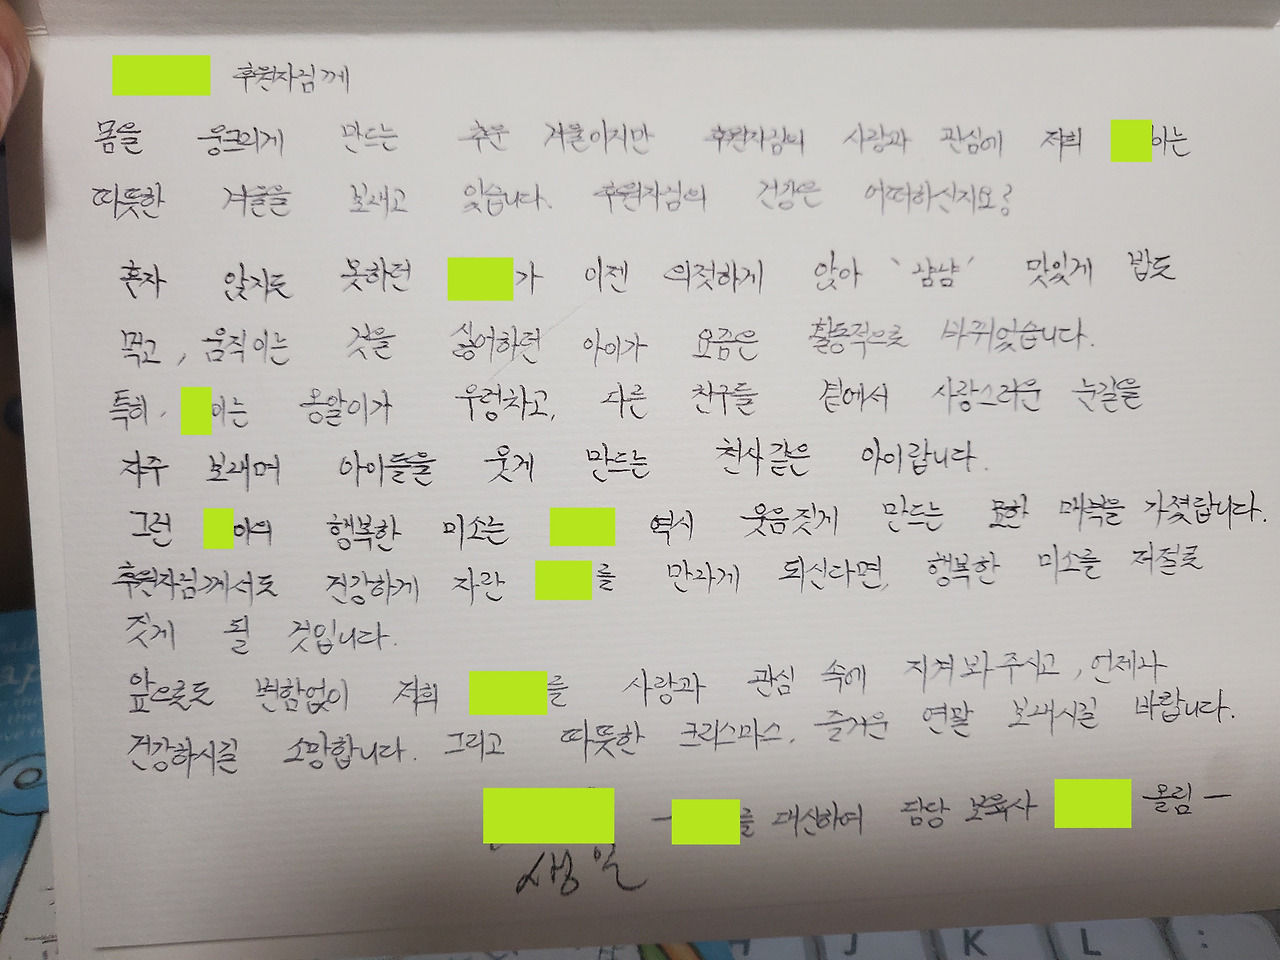 후원자님께
몸을 웅크리게 만드는 추운 겨울이지만 후원자님의 사랑과 관심에 저희 이는
따뜻한 겨울을 보내고 있습니다. 후원자님의 건강은 어떠하신지요?
혼자 앉지도 못하던 가 이젠 의젓하게 앉아 '냠냠' 맛있게 밥도
먹고, 움직이는 것을 싫어하던 아이가 요즘은 활동적으로 바뀌었습니다.
특히, 이는 옹알이가 우렁차고, 다른 친구들 곁에서 사랑스러운 눈길을
자주 보내며 아이들을 웃게 만드는 천사같은 아이랍니다.
그런 이의 행복한 미소는 역시 웃음짓게 만드는 묘한 매력을 가졌답니다.
후원자님께서도 건강하게 자란 를 만나게 되신다면, 행복한 미소를 저절로
짓게 될 것입니다.
앞으로도 변함없이 저희 를 사랑과 관심 속에 지켜봐주시고, 언제나
건강하시길 소망합니다. 그리고 따뜻한 크리스마스, 즐거운 연말 보내시길 바랍니다.
- 를 대신하여 담당 보육사 올림 -
생일
H J K L :